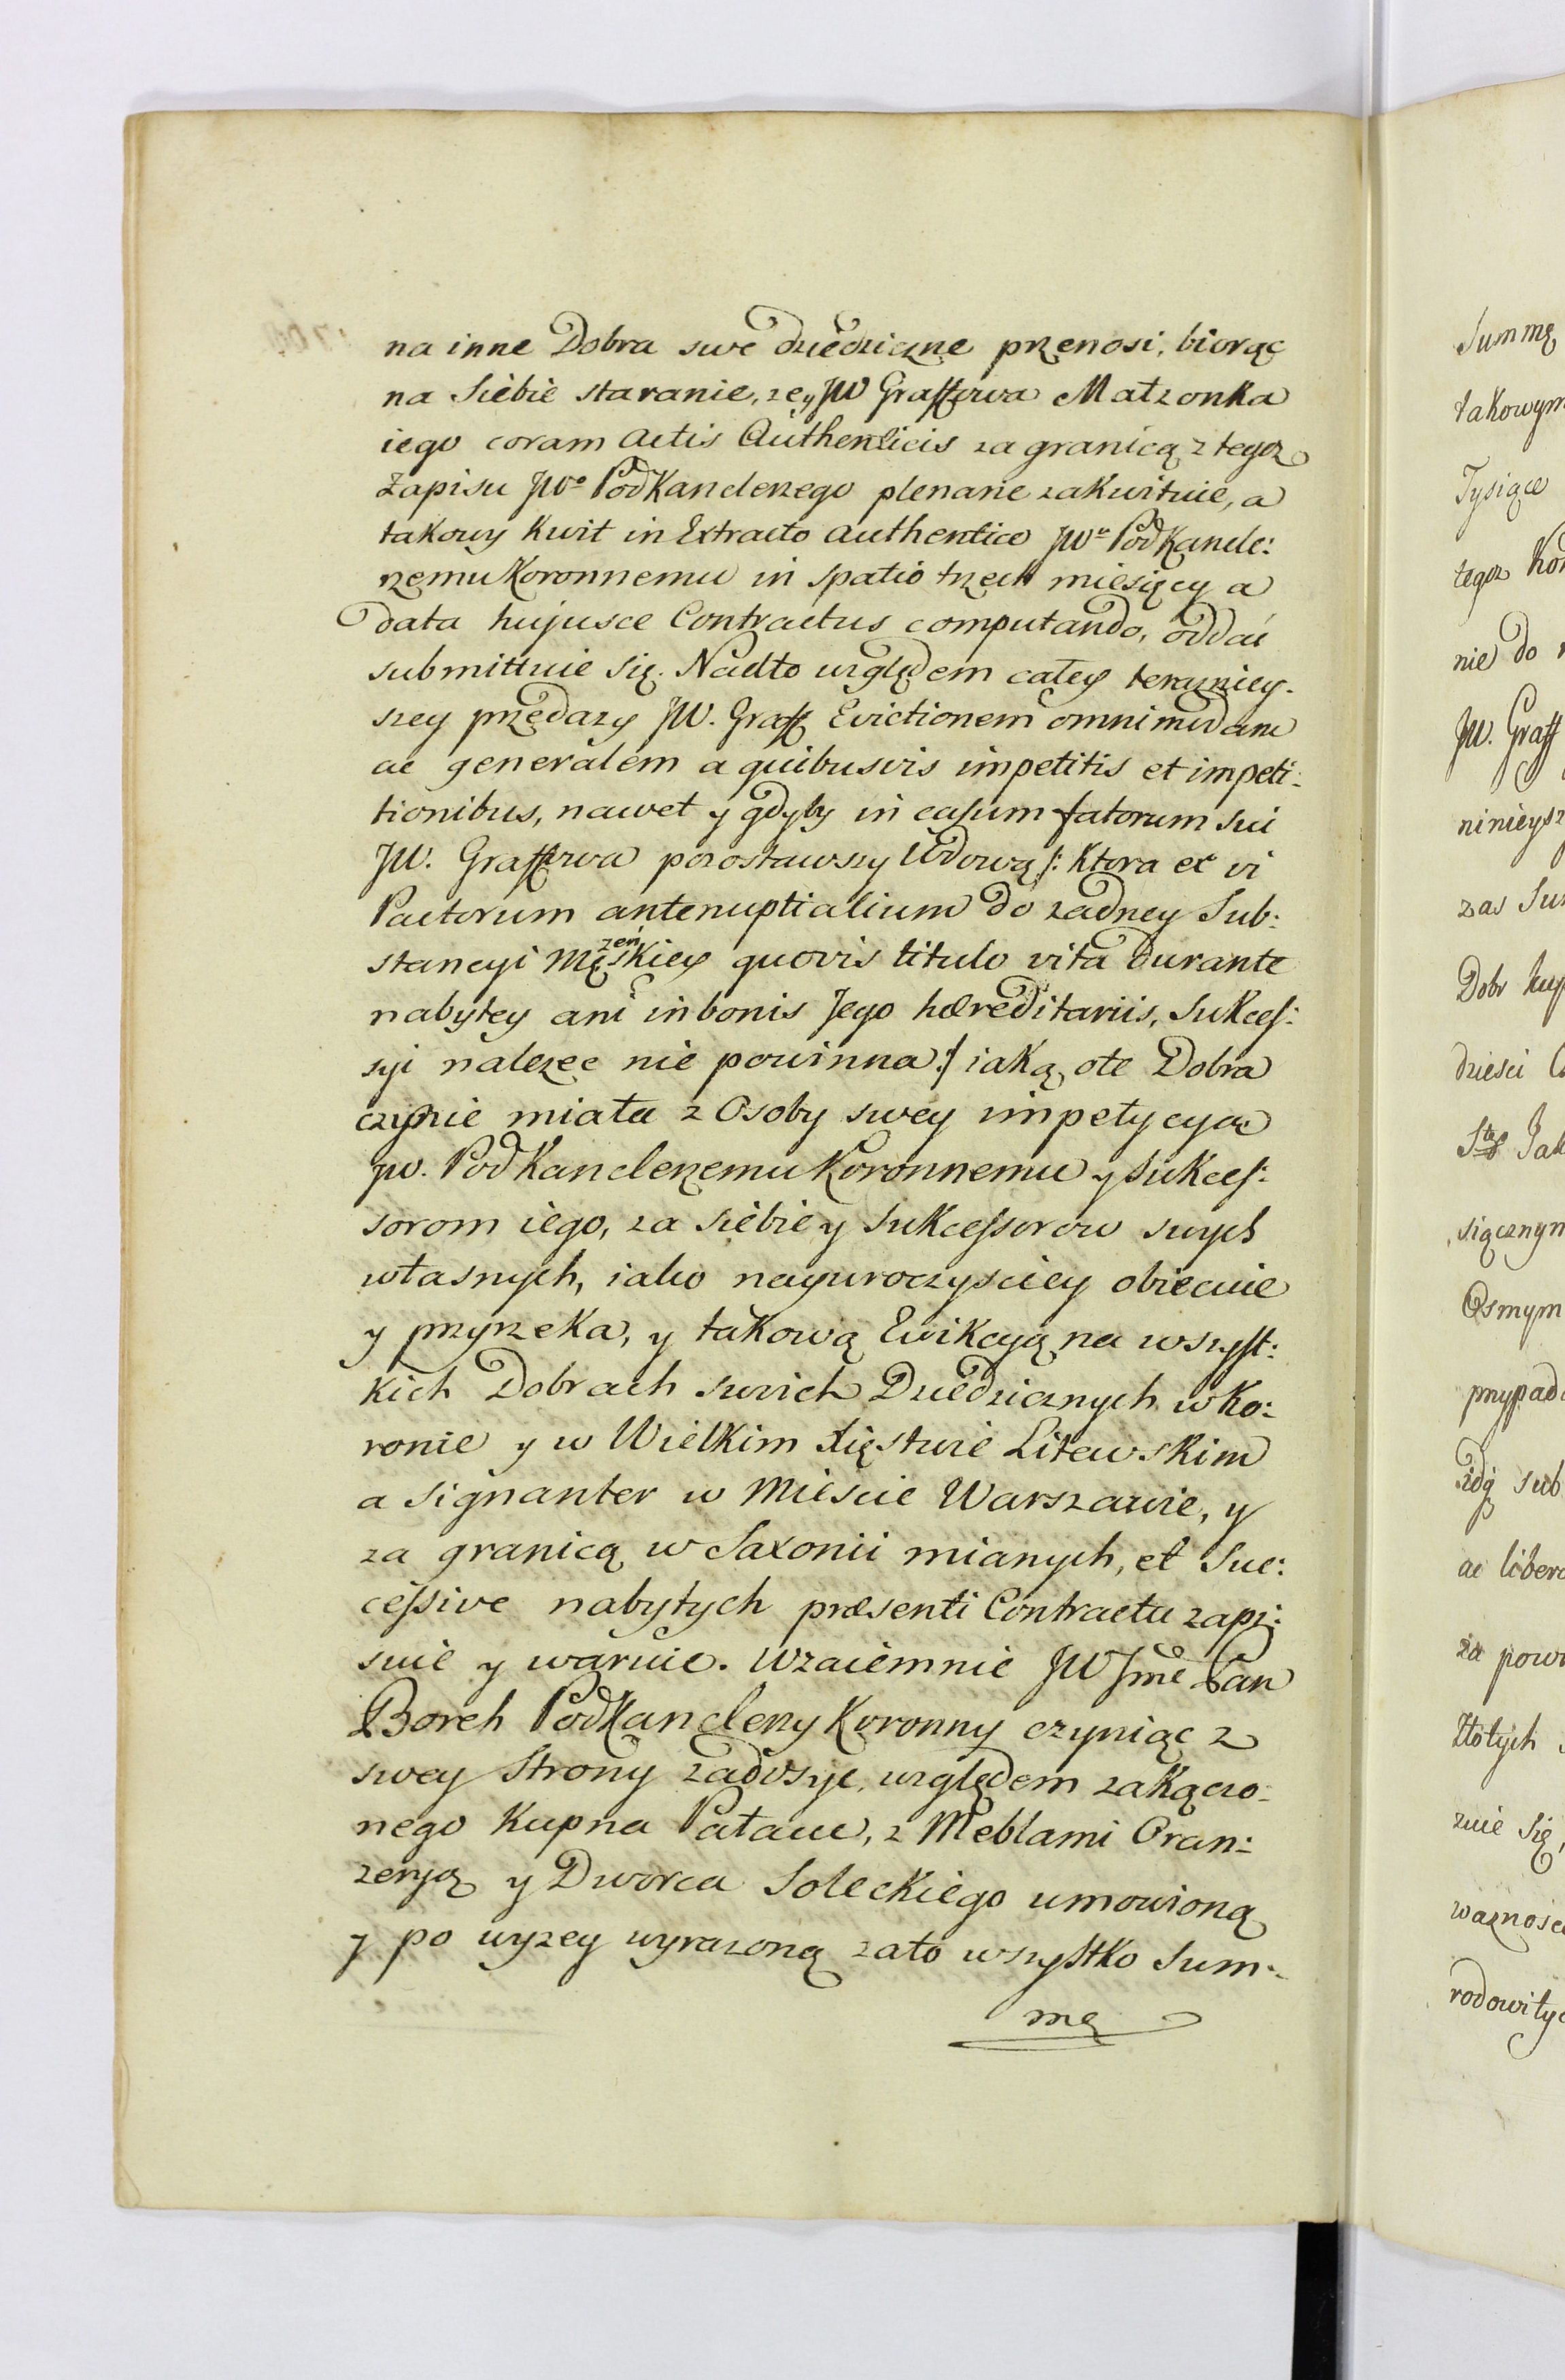 na inne Dobra swe dziedziczne przenosi, biorąc
na Siebie staranie, ze y JW Graffowa Małzonka
iego coram Actis Authenticis za granicą z tegoz
Zapisu JWo Podkanclerzego plenarie zakwituie, a
takowy Kwit in Extracto authentico JWu Podkancle:
rzemu Koronnemu in spatio trzech miesięcy a
data hujusce Contractus computando, oddać
submittuie się. Nadto względem całey terazniey-
szey przedazy JW. Graff Evictionem omnimodam
ac generalem a quibusvis impetitis et impeti-
tionibus, nawet y gdyby in casum fatorum sui
JW. Graffowa pozostawszy Wdową /: Ktora ex vi
Pactorum antenuptialium do zadney Sub:
stancyi Męzeńskiey quovis titulo vita durante
nabytey ani in bonis Jego hæreditariis, Sukces:
syi nalezec nie powinna :/ iaką ote Dobra
czynie miała z Osoby swey impetycyą
JW. Podkanclerzemu Koronnemu y Sukces:
sorom iego, za siebie y Sukcessorow swych
własnych, iako nayuroczysciey obiecuie
y przyrzeka, y takową Ewikcyą na wszyst:
kich Dobrach swoich Dziedzicznych w Ko:
ronie y w Wielkim Xięstwie Litewskim
a signanter w Miescie Warszawie, y
za granicą w Saxonii mianych, et Suc:
cessive nabytych præsenti Contractu zapi:
suie y waruie. Wzaiemnie JW Jmć Pan
Borch Podkanclerzy Koronny czyniąc z
swey Strony zadosyc, względem zakączo-
nego Kupna Pałacu, z Meblami Oran:
zeryą y Dworca Soleckiego umowioną
y po wyzey wyrazoną zato wszystko Sum-
mę
Summą
takowym
Tysiące
tegoz
nie do
JW. Graff
ninieysz
zas
Dobr
dziesci
siącznym
Osmym
przypad
sub
ac libero
za powi
Złotych
zuie się,
waznosc
rodowity